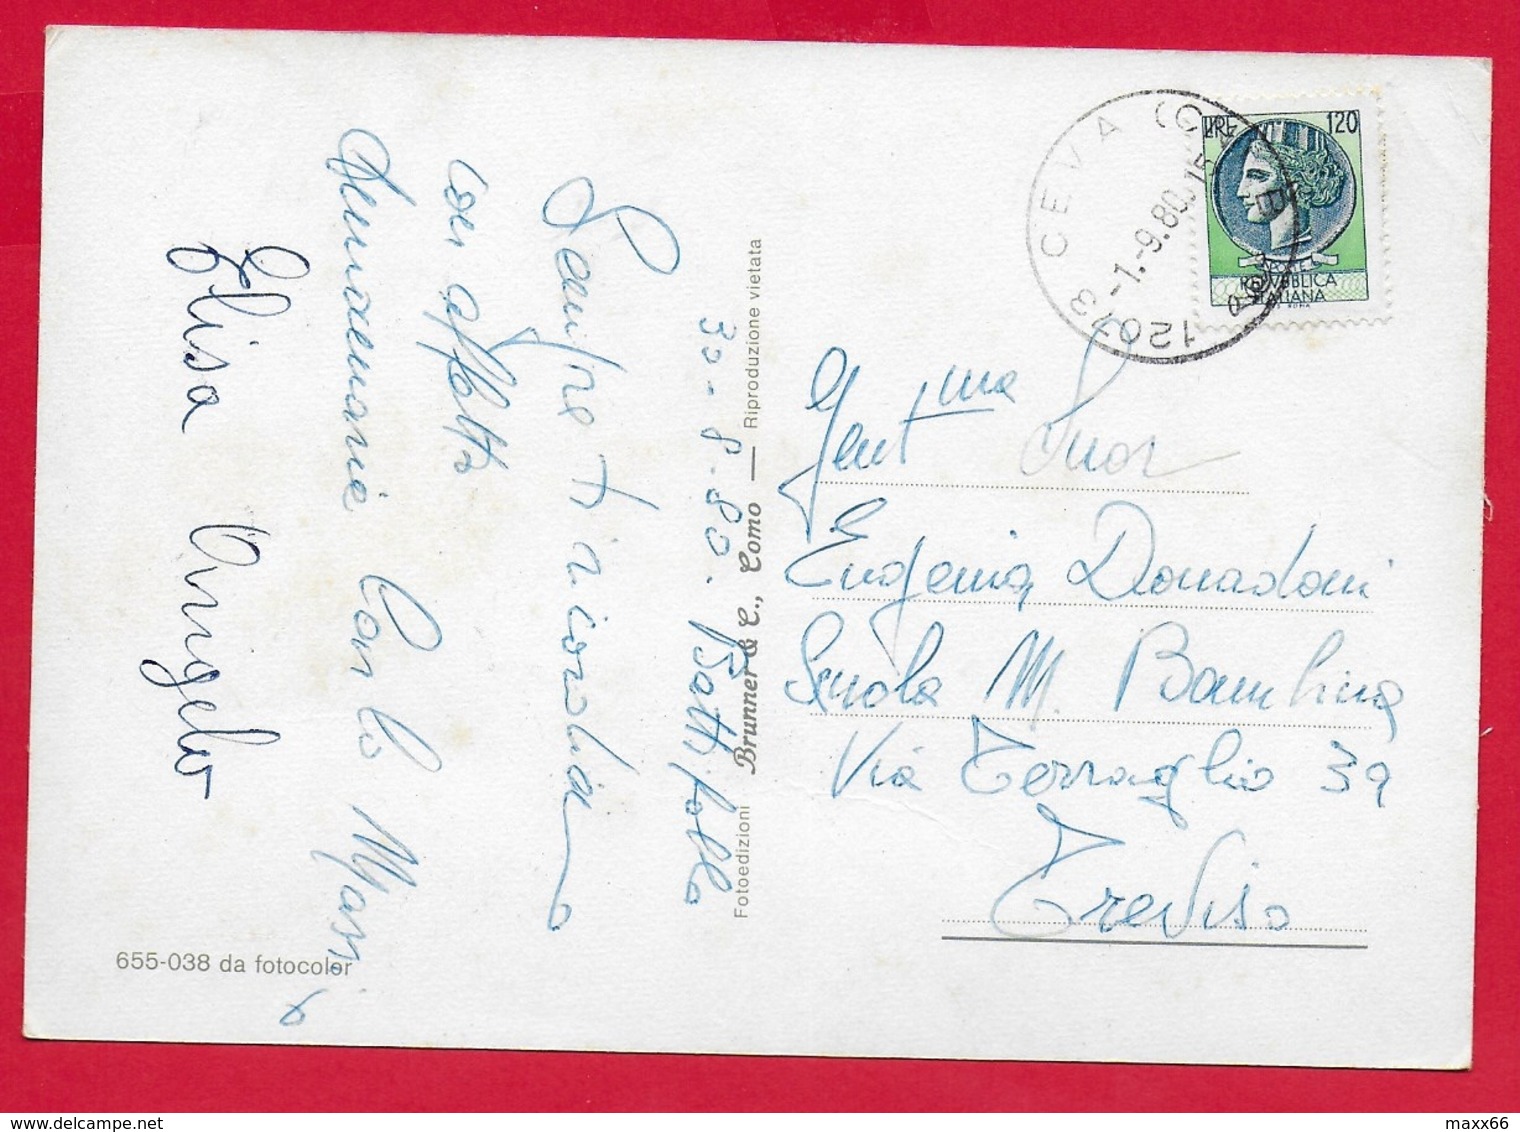 30-8-80. Battifollo
Sempre ti ricordiamo
con affetto
Annamaria Carlo Massi
Elisa Angelo
655-038 da fotocolor
Fotoedizioni Brunner & C., Como — Riproduzione vietata
12073 CEVA (CN)
-1.-9.80
LIRE 120
REPVBBLICA
ITALIANA
ROMA
Gent.ma Suor
Eugenia Donadoni
Scuola M. Bambina
Via Terraglio 39
Treviso
maxx66